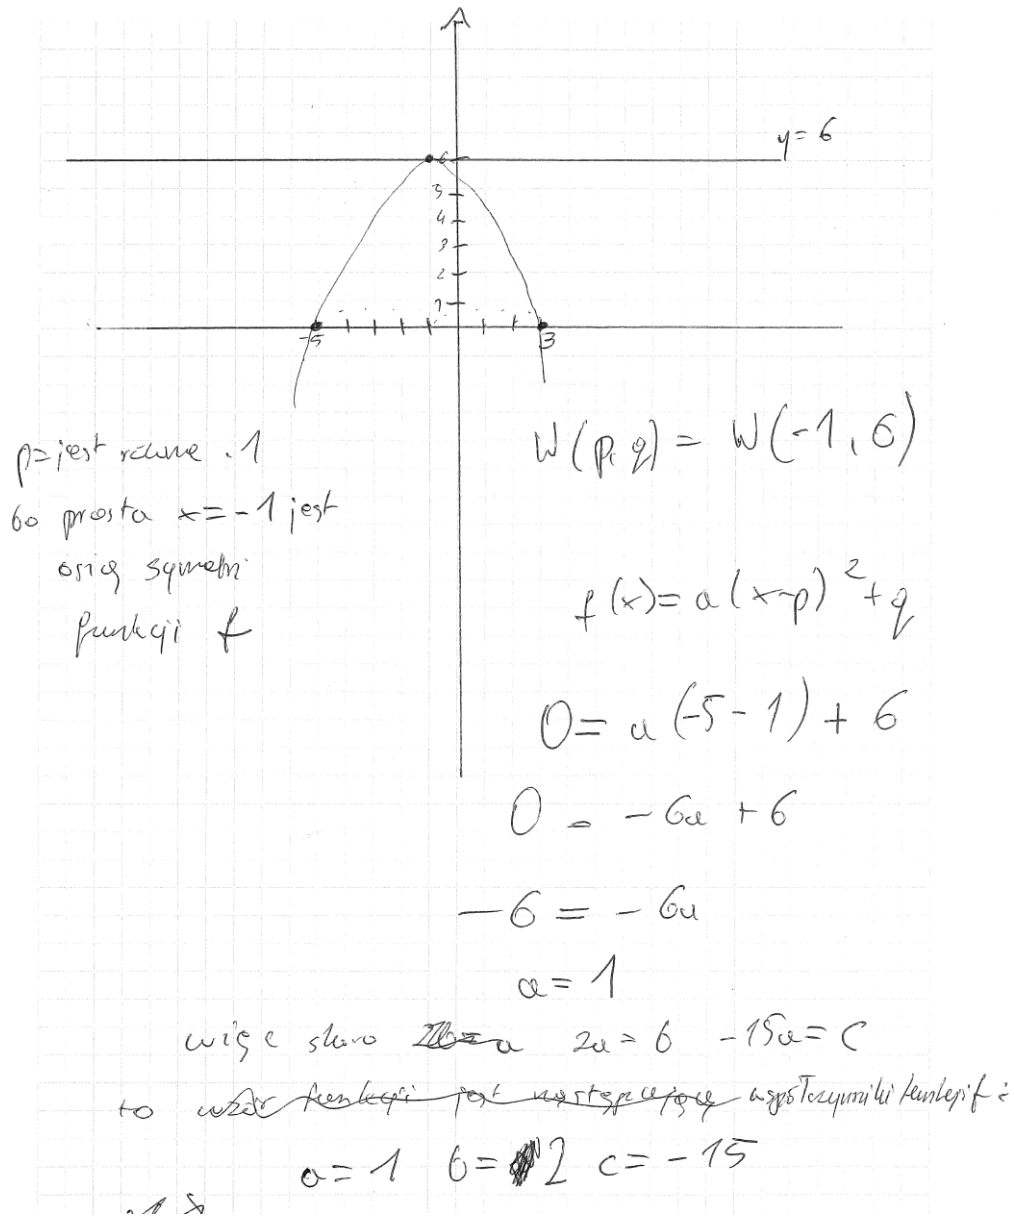 y = 6
6
5
4
3
2
1
-5
3
W(p, q) = W(-1, 6)
p= jest równe -1
bo prosta x = -1 jest
osią symetri
funkcji f
f(x) = a(x-p)² + q
0 = a(-5-1) + 6
0 = -6a + 6
-6 = -6a
a = 1
więc skoro 2a = b -15a = c
to wzór funkcji jest następujący współczynniki funkcji f :
a = 1 b = 2 c = -15